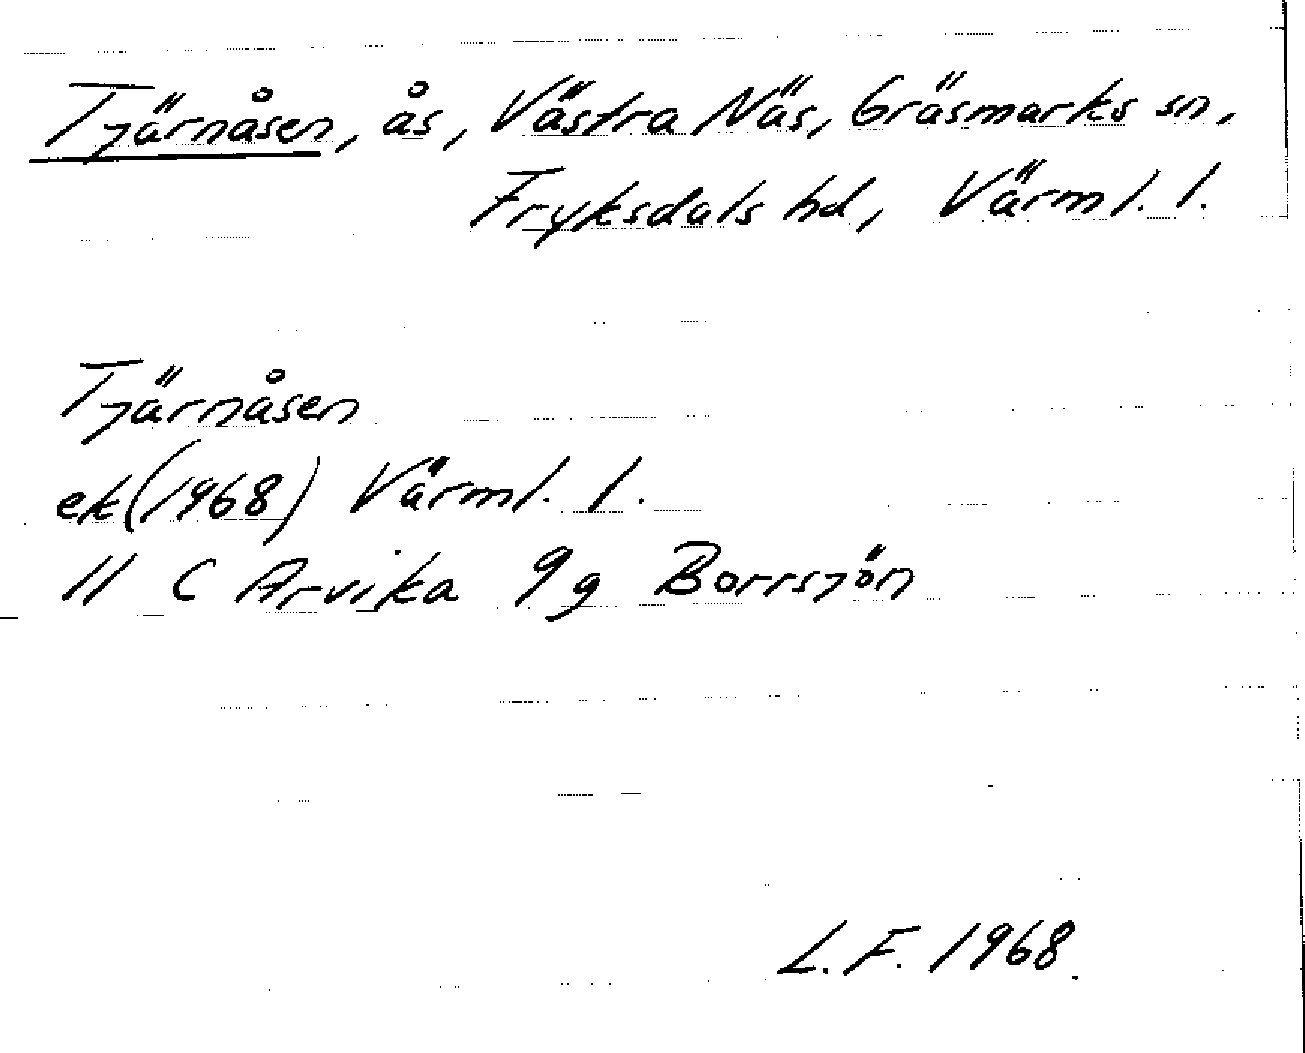 Tjärnåsen, ås, Västra Näs, Gräsmarks sn,
Fryksdals hd, Värml. l.
Tjärnåsen
ek (1968) Värml. l.
11 C Arvika 9g Borrsjön
L.F. 1968.